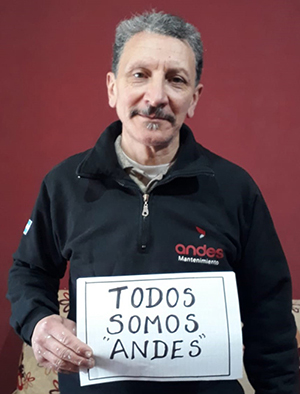 andes
Mantenimiento
TODOS
SOMOS
"ANDES"